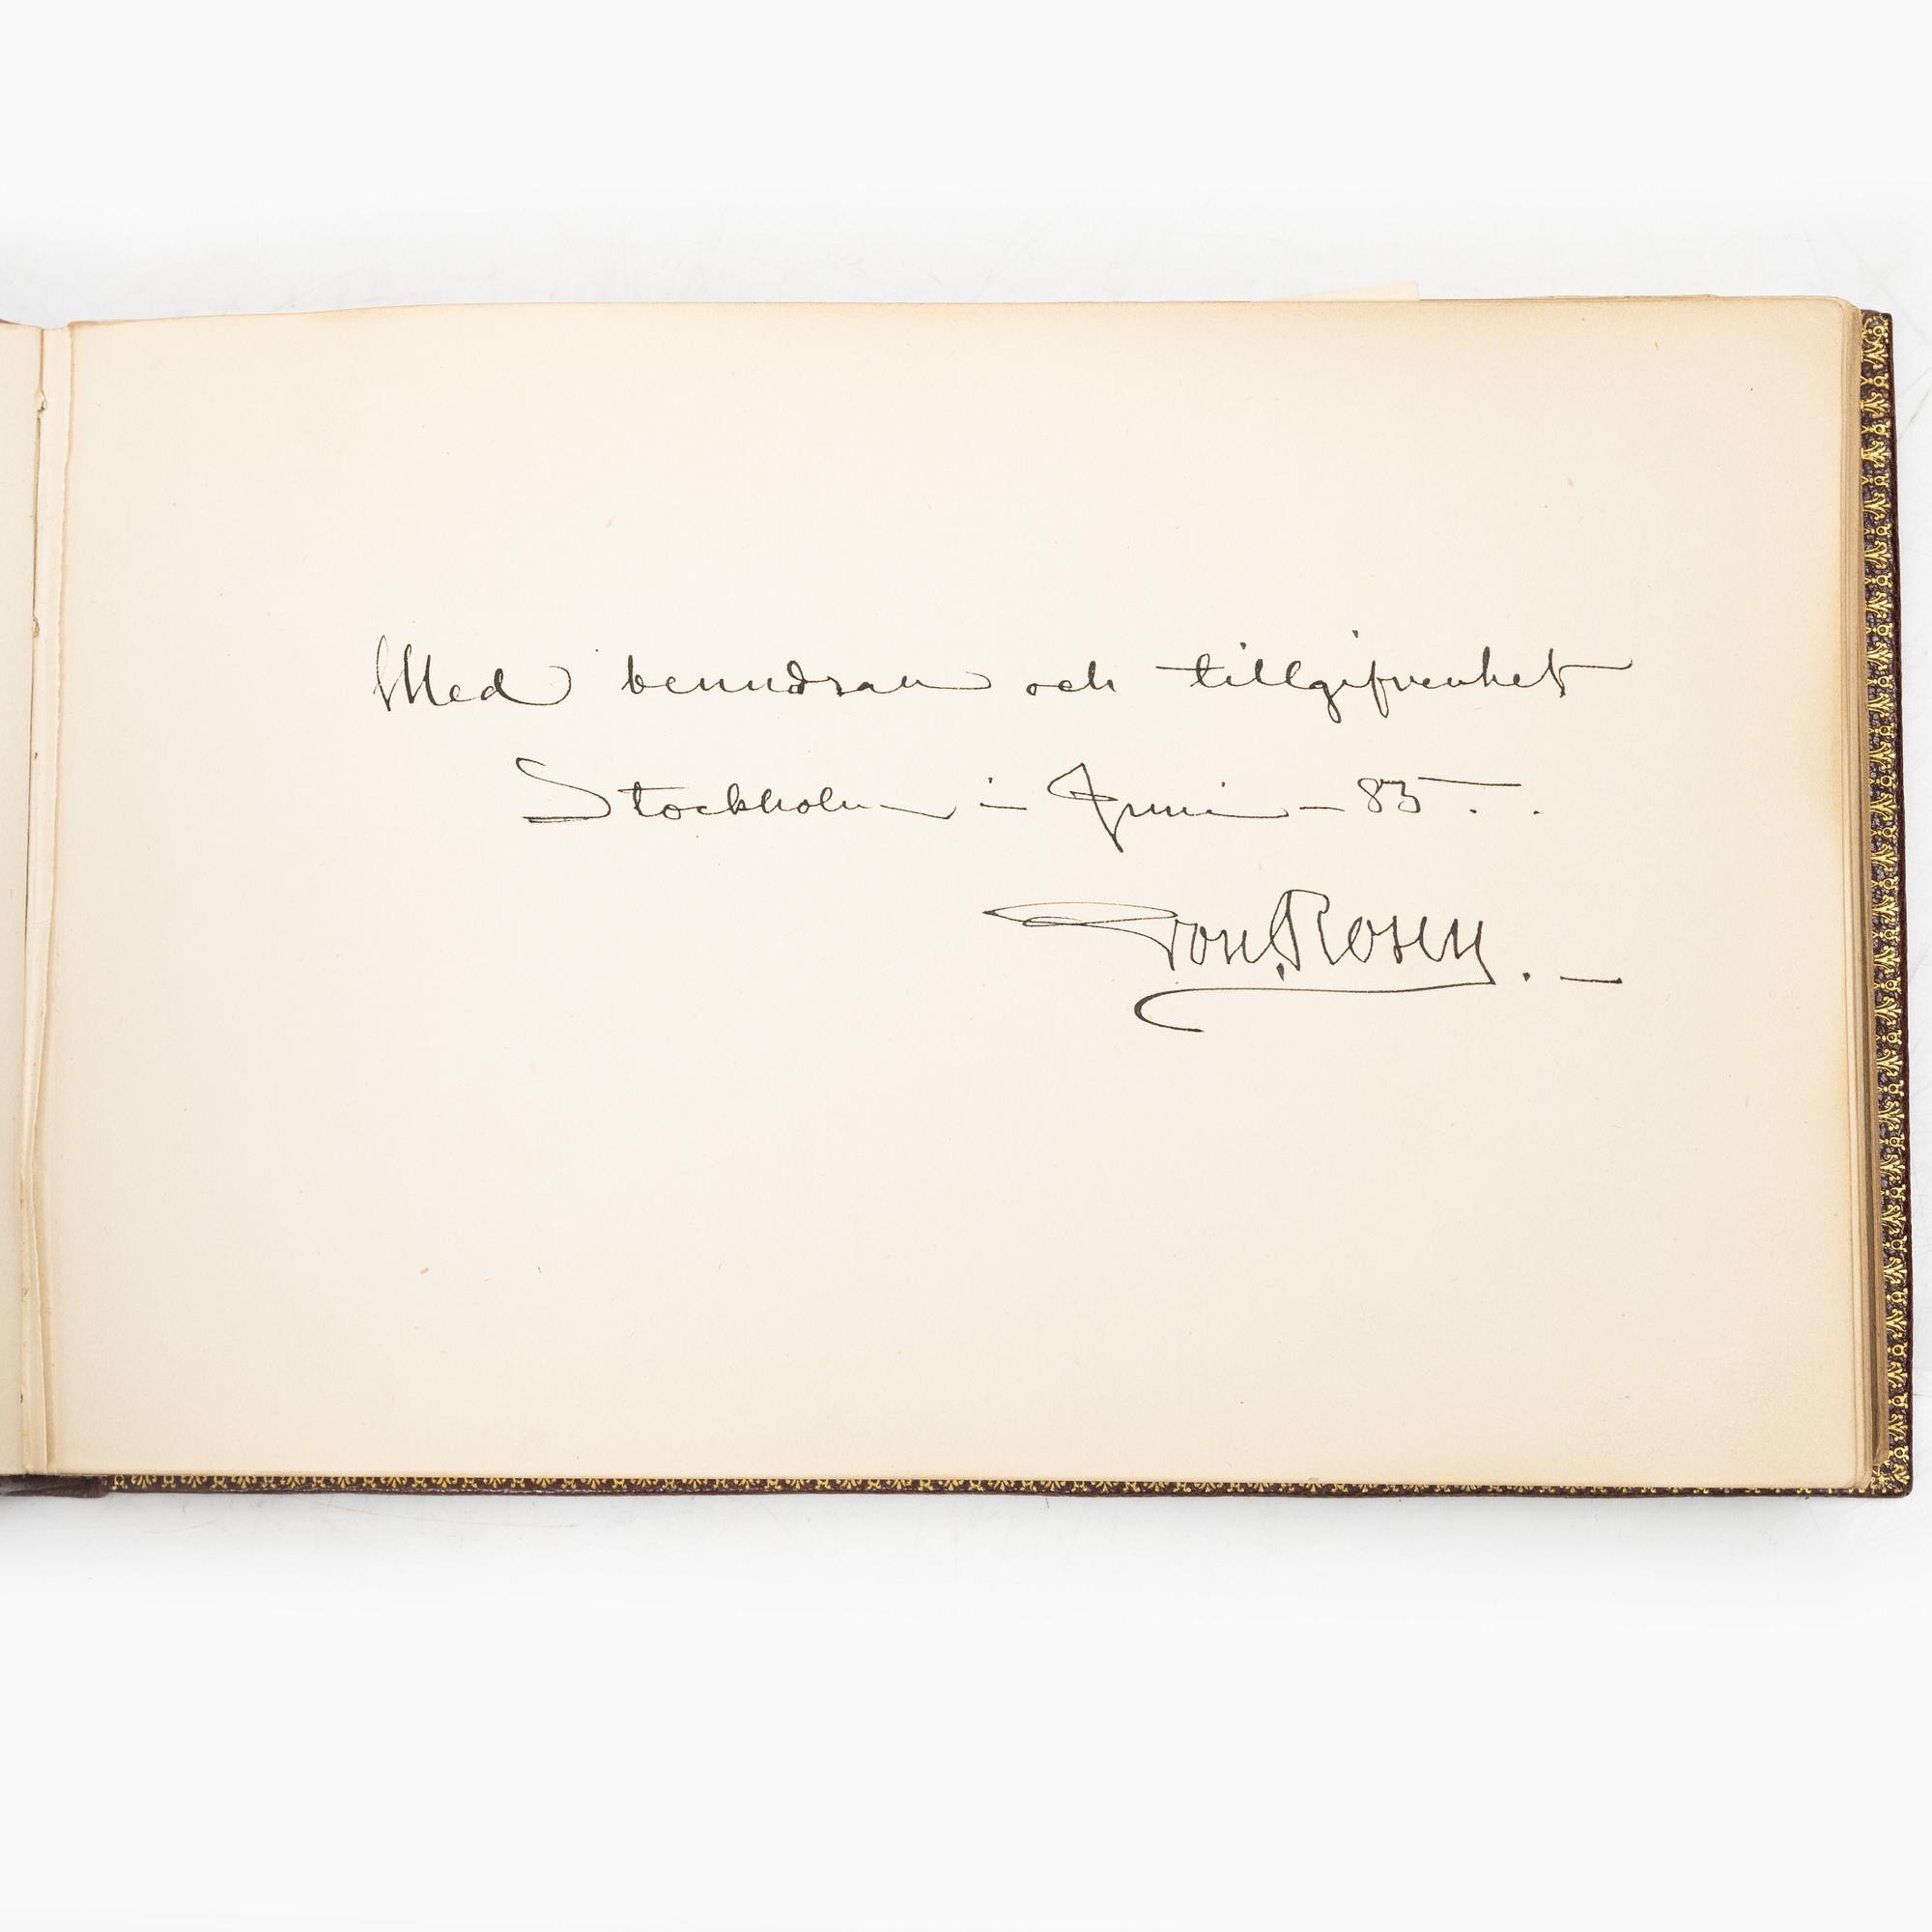 Med beundran och tillgifvenhet
Stockholm i Juni – 85. .
von Rosen. —